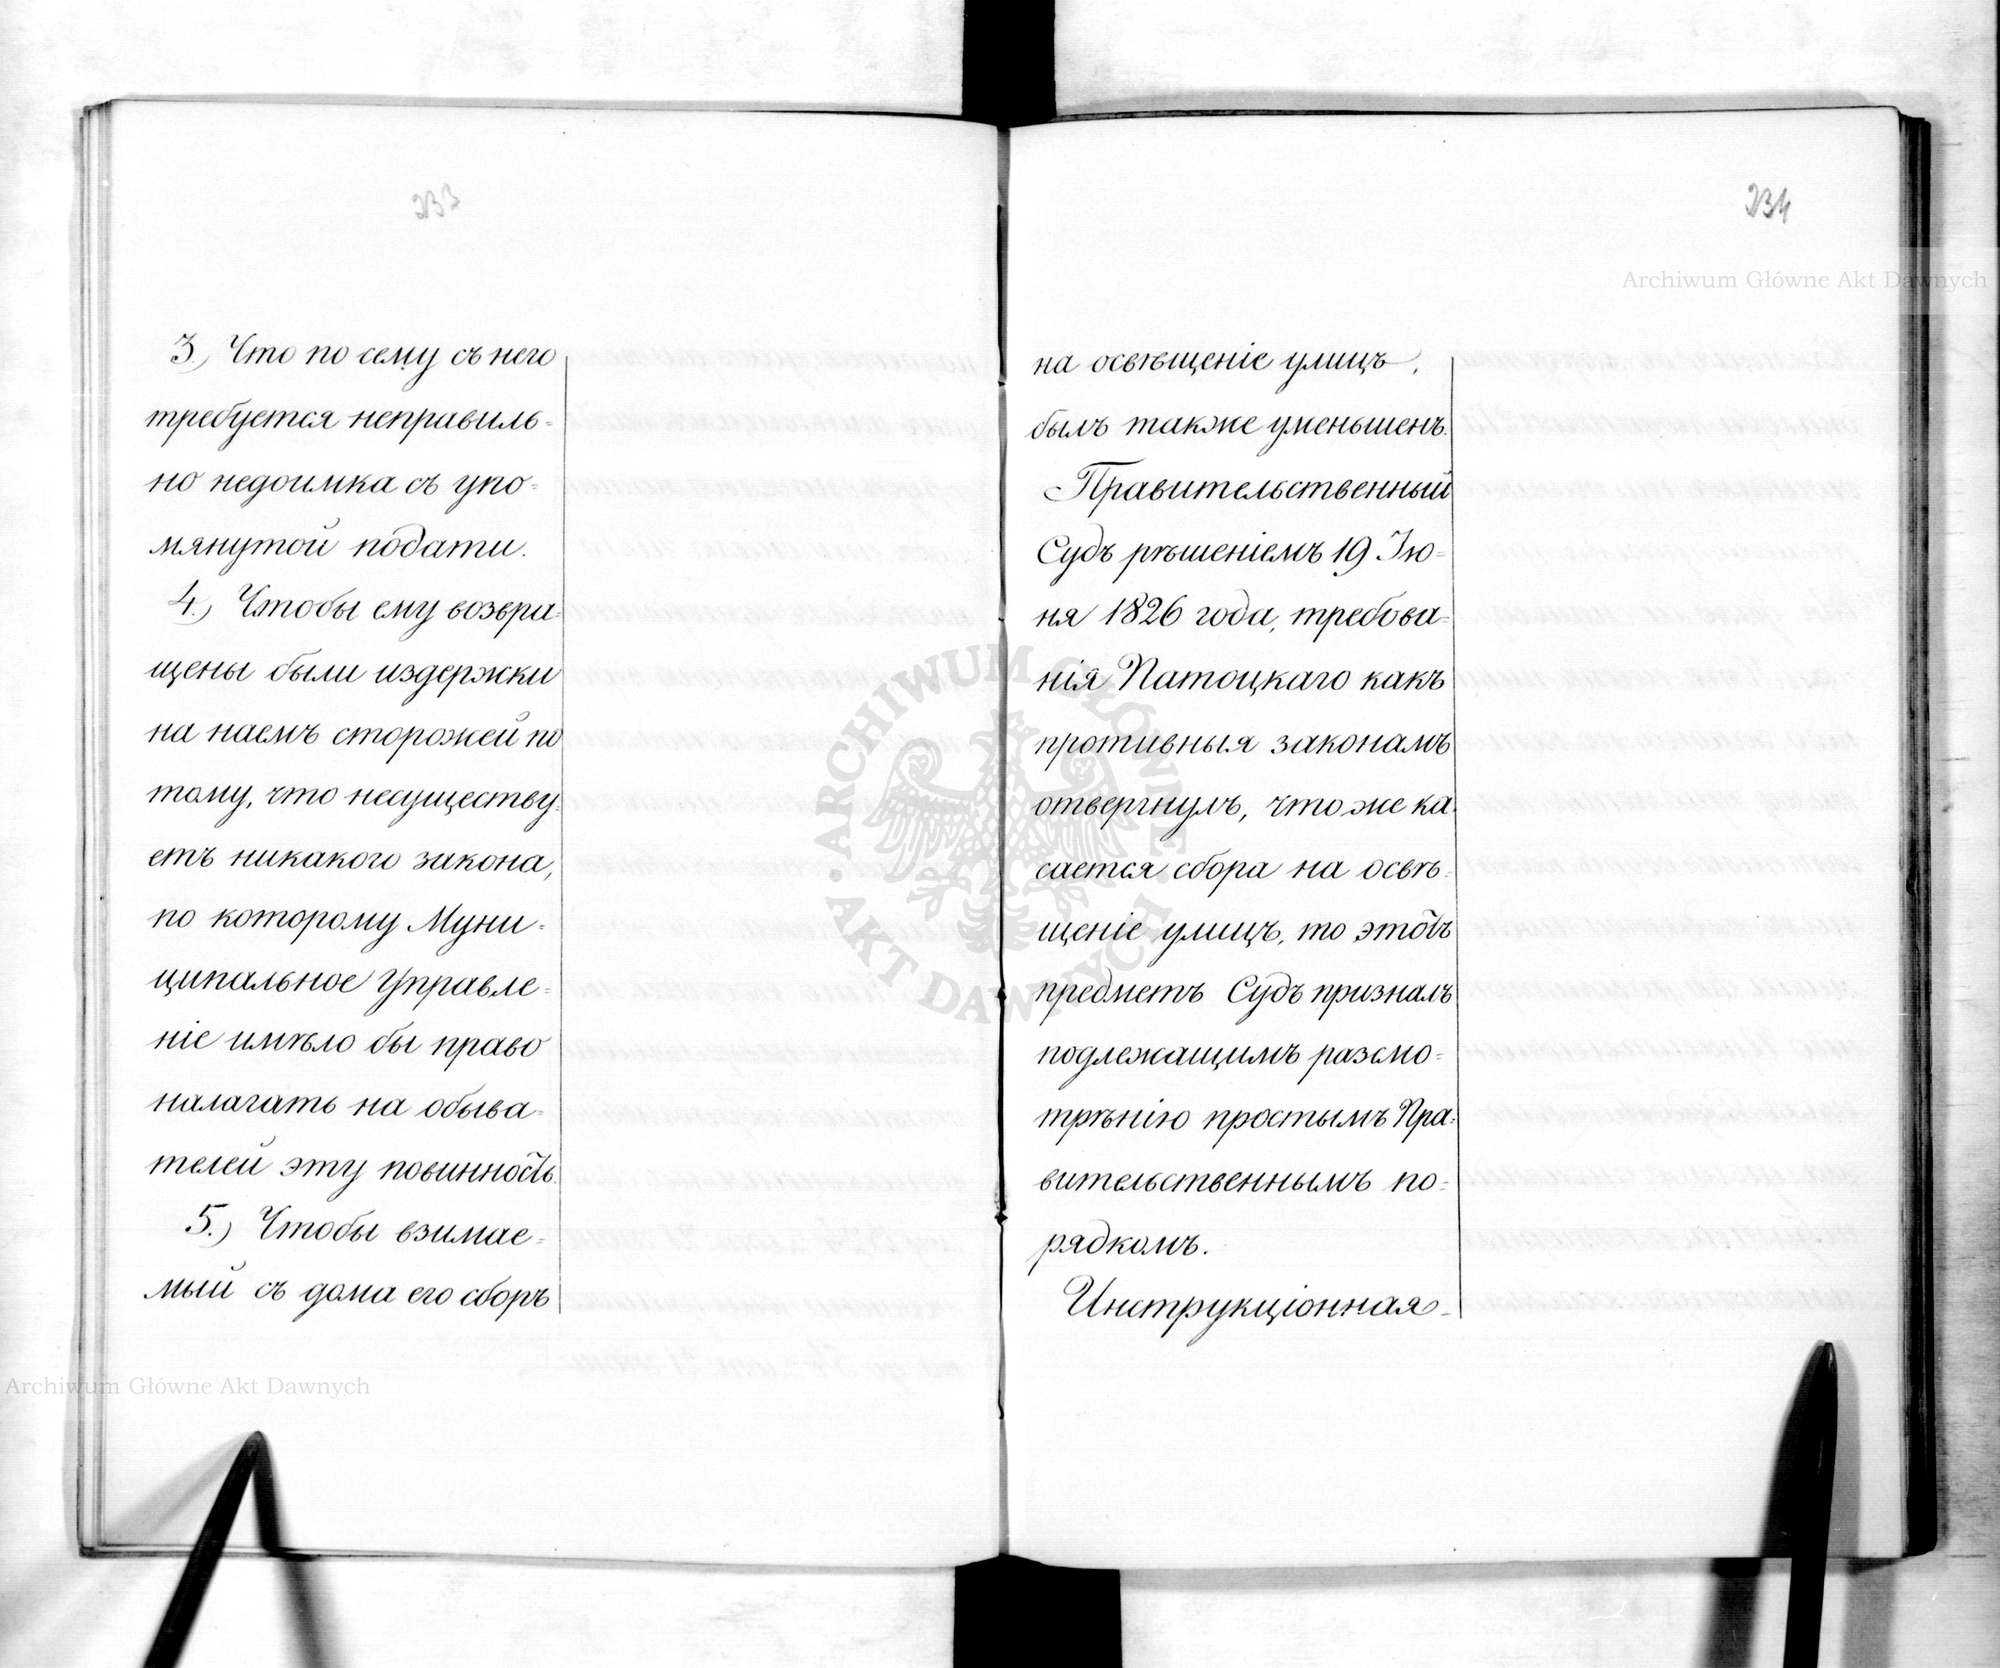 233
3.) Что по сему съ него
требуется неправиль=
но недоимка съ упо=
мянутой подати.
4.) Чтобы ему возвра=
щены были издержки
на наемъ сторожей по
тому, что несуществу=
етъ никакого закона,
по которому Муни=
ципальное Управле=
ніе имѣло бы право
налагать на обыва=
телей эту повинность.
5.) Чтобы взимае=
мый съ дома его сборъ
234
на освѣщеніе улицъ,
былъ также уменьшенъ.
Правительственный
Судъ рѣшеніемъ 19 Ію=
ня 1826 года, требова=
нія Патоцкаго какъ
противныя законамъ
отвергнулъ, что же ка=
сается сбора на освѣ=
щеніе улицъ, то этотъ
предметъ Судъ призналъ
подлежащимъ разсмо=
трѣнію простымъ Пра=
вительственнымъ по=
рядкомъ.
Инструкціонная
Archiwum Główne Akt Dawnych
ARCHIWUM GŁÓWNE · AKT DAWNYCH ·
Archiwum Główne Akt Dawnych